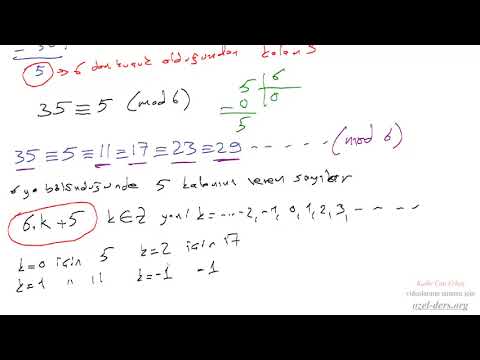 5 → 6 dan küçük olduğundan kalan 5
35 ≡ 5 (mod 6)
5 | 6
- 0 | 0
5
35 ≡ 5 ≡ 11 ≡ 17 ≡ 23 ≡ 29 - - - - - (mod 6)
6 ya bölündüğünde 5 kalanını veren sayılar
6.k+5 k∈Z yani k = ---- -2, -1, 0, 1, 2, 3, - - - - -
k=0 için 5 k=2 için 17
k=1 " 11 k=-1 -1
videolarımın tamamı için
ozel-ders.org